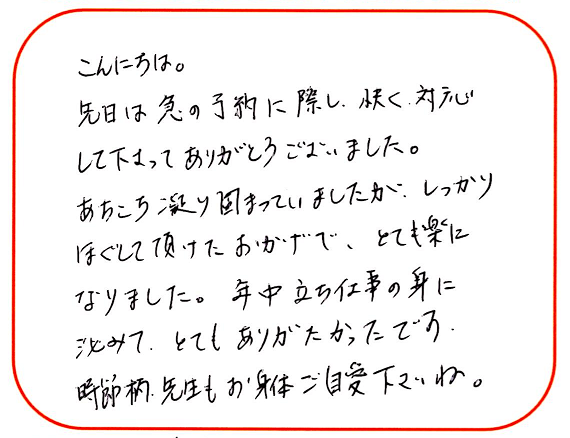 こんにちは。
先日は急の予約に際し、快く対応
して下さってありがとうございました。
あちこち凝り固まっていましたが、しっかり
ほぐして頂けたおかげで、とても楽に
なりました。年中立ち仕事の身に
沁みて、とてもありがたかったです。
時節柄、先生もお身体ご自愛下さいね。